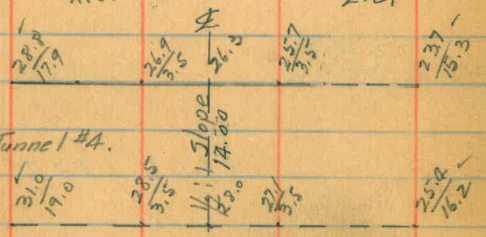 ℄
28.8/17.9 26.9/3.5 26.3 25.7/3.5 23.7/15.3
Tunnel #4.
½:1 Slope
14.00
31.0/19.0 28.5/3.5 28.0 27.1/3.5 25.4/16.2